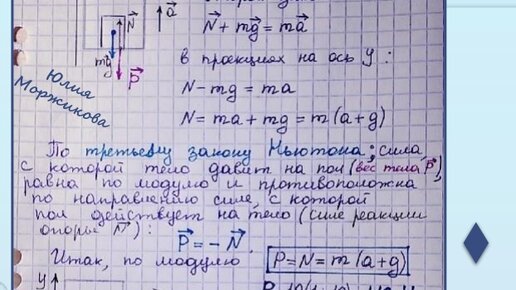 N⃗
a⃗
mg⃗
P⃗
Юлия
Моржикова
N⃗ + mg⃗ = ma⃗
в проекциях на ось y :
N - mg = ma
N = ma + mg = m(a+g)
По третьему закону Ньютона, сила,
с которой тело давит на пол (вес тела P⃗),
равна по модулю и противоположна
по направлению силе, с которой
пол действует на тело (силе реакции
опоры N⃗) :
P⃗ = - N⃗
Итак, по модулю
P = N = m(a+g)
y